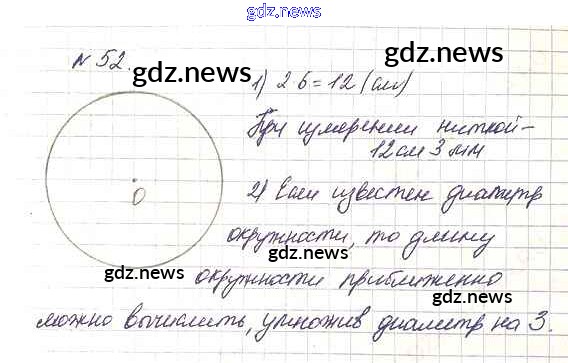 gdz.news
№ 52.
gdz.news
gdz.news
1) 2 6 = 12 (см)
gdz.news
При измерении ниткой –
12 см 3 мм
О
2) Если известен диаметр
gdz.news
окружности, то длину
gdz.news
окружности приближенно
gdz.news
можно вычислить, умножив диаметр на 3.